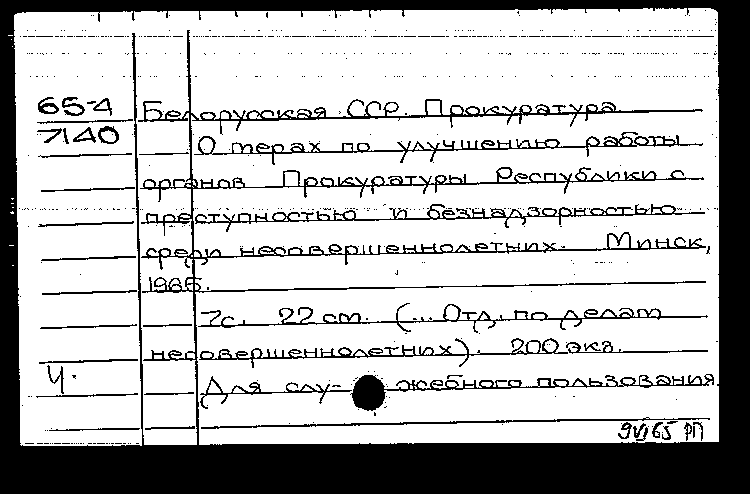 65-4
7140
Белорусская ССР. Прокуратура.
О мерах по улучшению работы
органов Прокуратуры Республики с
преступностью и безнадзорностью
среди несовершеннолетних. Минск,
1965.
7с. 22 см. (... Отд. по делам
несовершеннолетних). 200 экз.
Ч.
Для слу- жебного пользования.
9VI65 РП